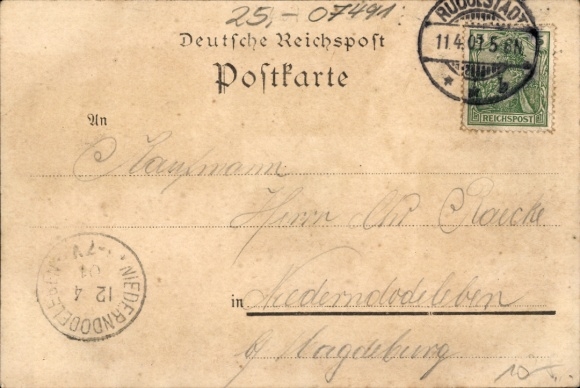 25,- 07491
Deutsche Reichspost
Postkarte
RUDOLSTADT
11.4.01. 5-6N.
* b
REICHSPOST
An
Kaufmann
Herrn Raecke
in Niederndodeleben
b/ Magdeburg
NIEDERNDODELEBEN
12 4
01
7V
10.-